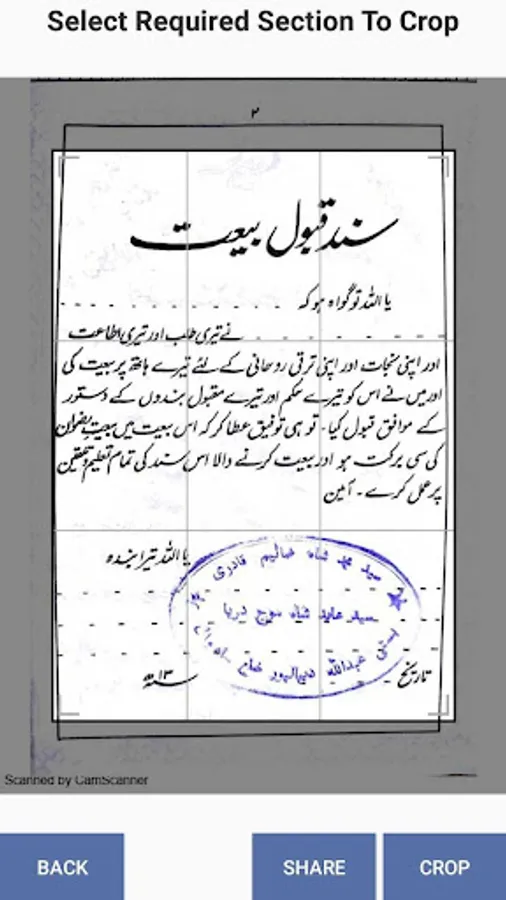 Select Required Section To Crop
۲
سند قبول بیعت
یا اللہ تو گواہ ہو کہ
نے تیری طلب اور تیری اطاعت
اور اپنی نجات اور اپنی ترقی روحانی کے لئے تیرے ہاتھ پر بیعت کی
اور میں نے اس کو تیرے حکم اور تیرے مقبول بندوں کے دستور
کے موافق قبول کیا۔ تو ہی توفیق عطا کر کہ اس بیعت میں بیعت رضوان
کی سی برکت ہو اور بیعت کرنے والا اس سند کی تمام تعلیم و تلقین
پر عمل کرے۔ آمین
یا اللہ تیرا بندہ
سید محمد شاہ قادری
سید عابد شاہ موج دریا
بستی عبداللہ ضلع
تاریخ
سنہ ۱۳ھ
Scanned by CamScanner
BACK
SHARE
CROP